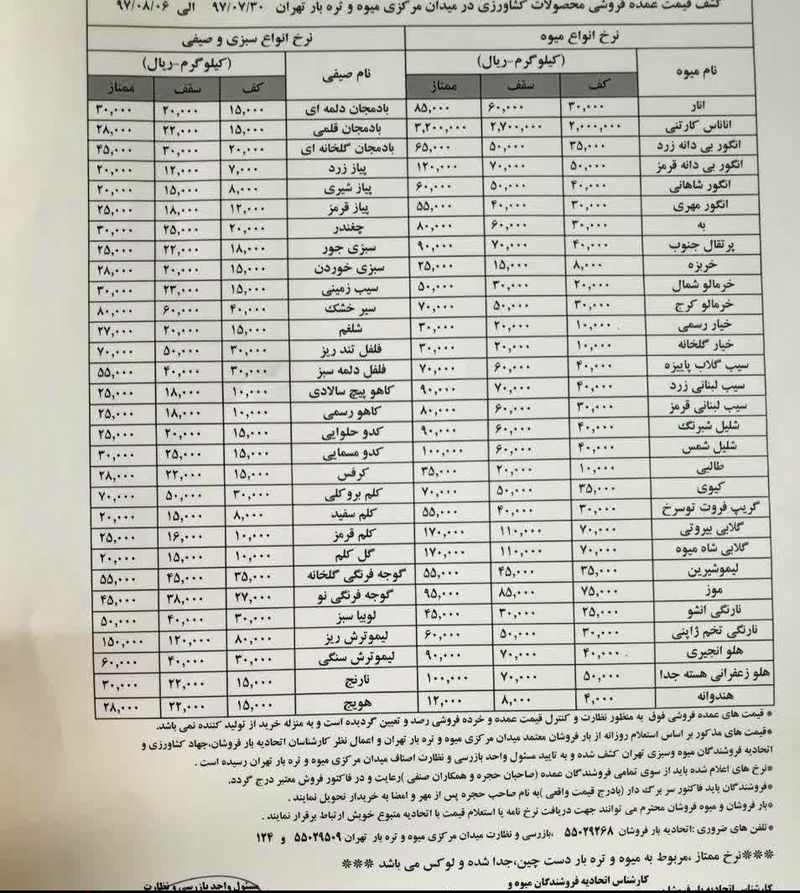 کشف قیمت عمده فروشی محصولات کشاورزی در میدان مرکزی میوه و تره بار تهران ۹۷/۰۷/۳۰ الی ۹۷/۰۸/۰۶
نرخ انواع میوه نرخ انواع سبزی و صیفی
نام میوه (کیلوگرم-ریال) نام صیفی (کیلوگرم-ریال)
کف سقف ممتاز کف سقف ممتاز
انار ۳۰,۰۰۰ ۶۰,۰۰۰ ۸۵,۰۰۰ بادمجان دلمه ای ۱۵,۰۰۰ ۲۰,۰۰۰ ۳۰,۰۰۰
اناناس کارتنی ۲,۰۰۰,۰۰۰ ۲,۷۰۰,۰۰۰ ۳,۲۰۰,۰۰۰ بادمجان قلمی ۱۵,۰۰۰ ۲۲,۰۰۰ ۲۸,۰۰۰
انگور بی دانه زرد ۳۵,۰۰۰ ۵۰,۰۰۰ ۶۵,۰۰۰ بادمجان گلخانه ای ۲۰,۰۰۰ ۳۰,۰۰۰ ۴۵,۰۰۰
انگور بی دانه قرمز ۵۰,۰۰۰ ۷۰,۰۰۰ ۱۲۰,۰۰۰ پیاز زرد ۷,۰۰۰ ۱۲,۰۰۰ ۲۰,۰۰۰
انگور شاهانی ۴۰,۰۰۰ ۵۰,۰۰۰ ۶۰,۰۰۰ پیاز شیری ۸,۰۰۰ ۱۵,۰۰۰ ۲۰,۰۰۰
انگور مهری ۳۰,۰۰۰ ۴۰,۰۰۰ ۵۵,۰۰۰ پیاز قرمز ۱۲,۰۰۰ ۱۸,۰۰۰ ۲۵,۰۰۰
به ۳۰,۰۰۰ ۶۰,۰۰۰ ۸۰,۰۰۰ چغندر ۲۰,۰۰۰ ۲۵,۰۰۰ ۳۰,۰۰۰
پرتقال جنوب ۴۰,۰۰۰ ۷۰,۰۰۰ ۹۰,۰۰۰ سبزی جور ۱۸,۰۰۰ ۲۲,۰۰۰ ۲۵,۰۰۰
خربزه ۸,۰۰۰ ۱۵,۰۰۰ ۲۵,۰۰۰ سبزی خوردن ۱۵,۰۰۰ ۲۰,۰۰۰ ۲۸,۰۰۰
خرمالو شمال ۲۰,۰۰۰ ۳۰,۰۰۰ ۵۰,۰۰۰ سیب زمینی ۱۵,۰۰۰ ۲۳,۰۰۰ ۳۰,۰۰۰
خرمالو کرج ۳۰,۰۰۰ ۵۰,۰۰۰ ۷۰,۰۰۰ سیر خشک ۴۰,۰۰۰ ۶۰,۰۰۰ ۸۰,۰۰۰
خیار رسمی ۱۰,۰۰۰ ۲۰,۰۰۰ ۳۰,۰۰۰ شلغم ۱۵,۰۰۰ ۲۰,۰۰۰ ۲۷,۰۰۰
خیار گلخانه ۱۰,۰۰۰ ۲۰,۰۰۰ ۳۰,۰۰۰ فلفل تند ریز ۳۰,۰۰۰ ۵۰,۰۰۰ ۷۰,۰۰۰
سیب گلاب پاییزه ۴۰,۰۰۰ ۶۰,۰۰۰ ۷۰,۰۰۰ فلفل دلمه سبز ۳۰,۰۰۰ ۴۰,۰۰۰ ۵۵,۰۰۰
سیب لبنانی زرد ۴۰,۰۰۰ ۷۰,۰۰۰ ۹۰,۰۰۰ کاهو پیچ سالادی ۱۰,۰۰۰ ۱۸,۰۰۰ ۲۵,۰۰۰
سیب لبنانی قرمز ۳۰,۰۰۰ ۶۰,۰۰۰ ۸۰,۰۰۰ کاهو رسمی ۱۰,۰۰۰ ۱۸,۰۰۰ ۲۵,۰۰۰
شلیل شبرنگ ۴۰,۰۰۰ ۶۰,۰۰۰ ۹۰,۰۰۰ کدو حلوایی ۱۵,۰۰۰ ۲۰,۰۰۰ ۲۵,۰۰۰
شلیل شمس ۴۰,۰۰۰ ۶۰,۰۰۰ ۱۰۰,۰۰۰ کدو مسمایی ۱۵,۰۰۰ ۲۵,۰۰۰ ۳۰,۰۰۰
طالبی ۱۰,۰۰۰ ۲۰,۰۰۰ ۳۵,۰۰۰ کرفس ۱۵,۰۰۰ ۲۲,۰۰۰ ۲۸,۰۰۰
کیوی ۳۵,۰۰۰ ۵۰,۰۰۰ ۷۰,۰۰۰ کلم بروکلی ۳۰,۰۰۰ ۵۰,۰۰۰ ۷۰,۰۰۰
گریپ فروت توسرخ ۳۰,۰۰۰ ۴۰,۰۰۰ ۵۵,۰۰۰ کلم سفید ۸,۰۰۰ ۱۵,۰۰۰ ۲۰,۰۰۰
گلابی بیروتی ۷۰,۰۰۰ ۱۱۰,۰۰۰ ۱۷۰,۰۰۰ کلم قرمز ۱۰,۰۰۰ ۱۶,۰۰۰ ۲۵,۰۰۰
گلابی شاه میوه ۷۰,۰۰۰ ۱۱۰,۰۰۰ ۱۷۰,۰۰۰ گل کلم ۱۰,۰۰۰ ۱۵,۰۰۰ ۲۰,۰۰۰
لیموشیرین ۳۵,۰۰۰ ۴۵,۰۰۰ ۵۵,۰۰۰ گوجه فرنگی گلخانه ۳۵,۰۰۰ ۴۵,۰۰۰ ۵۵,۰۰۰
موز ۷۵,۰۰۰ ۸۵,۰۰۰ ۹۵,۰۰۰ گوجه فرنگی نو ۲۷,۰۰۰ ۳۸,۰۰۰ ۴۵,۰۰۰
نارنگی انشو ۲۵,۰۰۰ ۳۰,۰۰۰ ۴۵,۰۰۰ لوبیا سبز ۳۰,۰۰۰ ۴۰,۰۰۰ ۵۰,۰۰۰
نارنگی تخم ژاپنی ۳۰,۰۰۰ ۵۰,۰۰۰ ۶۰,۰۰۰ لیموترش ریز ۸۰,۰۰۰ ۱۲۰,۰۰۰ ۱۵۰,۰۰۰
هلو انجیری ۴۰,۰۰۰ ۷۰,۰۰۰ ۹۰,۰۰۰ لیموترش سنگی ۳۰,۰۰۰ ۴۰,۰۰۰ ۶۰,۰۰۰
هلو زعفرانی هسته جدا ۵۰,۰۰۰ ۷۰,۰۰۰ ۱۰۰,۰۰۰ نارنج ۱۵,۰۰۰ ۲۲,۰۰۰ ۳۰,۰۰۰
هندوانه ۴,۰۰۰ ۸,۰۰۰ ۱۲,۰۰۰ هویج ۱۵,۰۰۰ ۲۲,۰۰۰ ۲۸,۰۰۰
*قیمت های عمده فروشی فوق به منظور نظارت و کنترل قیمت عمده و خرده فروشی رصد و تعیین گردیده است و به منزله خرید از تولید کننده نمی باشد.
*قیمت های مذکور بر اساس استعلام روزانه از بار فروشان معتمد میدان مرکزی میوه و تره بار تهران و اعمال نظر کارشناسان اتحادیه بار فروشان،جهاد کشاورزی و
اتحادیه فروشندگان میوه وسبزی تهران کشف شده و به تایید مسئول واحد بازرسی و نظارت اصناف میدان مرکزی میوه و تره بار تهران رسیده است .
*نرخ های اعلام شده باید از سوی تمامی فروشندگان عمده (صاحبان حجره و همکاران صنفی )رعایت و در فاکتور فروش معتبر درج گردد.
*فروشندگان باید فاکتور سر برگ دار (بادرج قیمت واقعی )به نام صاحب حجره پس از مهر و امضا به خریدار تحویل نمایند .
*بار فروشان و میوه فروشان محترم می توانند جهت دریافت نرخ نامه یا استعلام قیمت با اتحادیه متبوع خویش ارتباط برقرار نمایند .
*تلفن های ضروری :اتحادیه بار فروشان ۵۵۰۲۹۲۶۸ ،بازرسی و نظارت میدان مرکزی میوه و تره بار تهران ۵۵۰۲۹۵۰۹ و ۱۲۴
***نرخ ممتاز ،مربوط به میوه و تره بار دست چین،جدا شده و لوکس می باشد ***
کارشناس اتحادیه بار فروشان کارشناس اتحادیه فروشندگان میوه و مسئول واحد بازرسی و نظارت